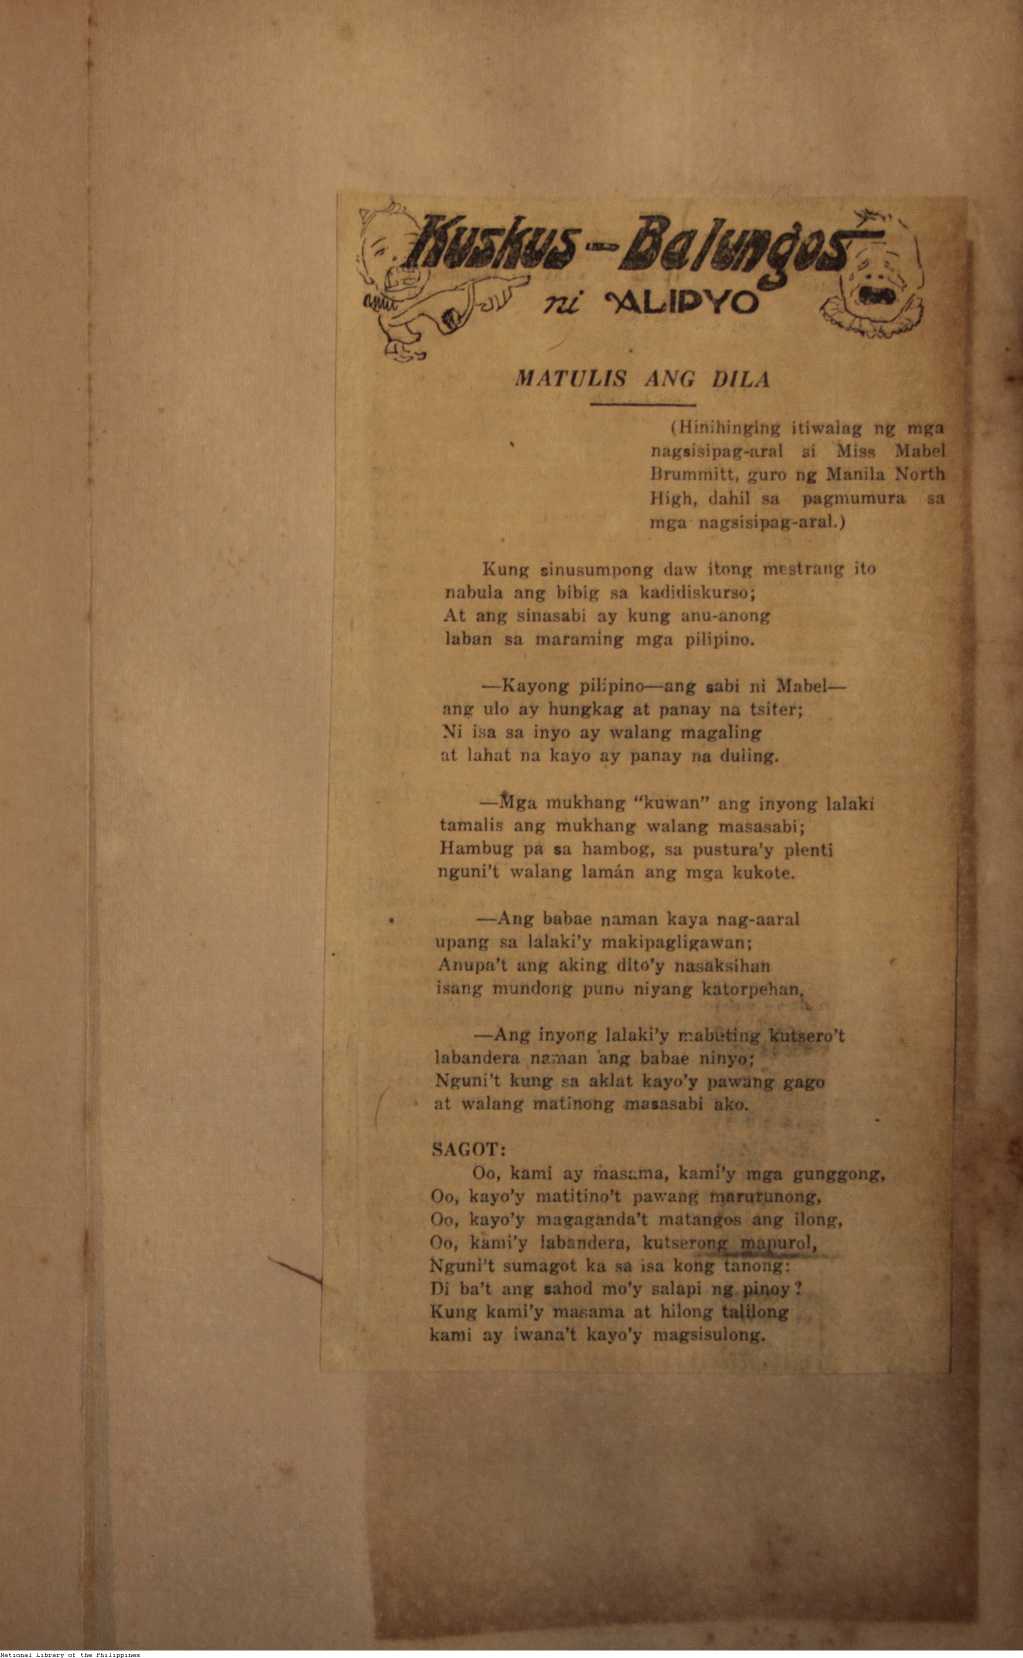 Kuskus-Balungos
ni ALIPYO
MATULIS ANG DILA
(Hinihinging itiwalag ng mga
nagsisipag-aral si Miss Mabel
Brummitt, guro ng Manila North
High, dahil sa pagmumura sa
mga nagsisipag-aral.)
Kung sinusumpong daw itong mestrang ito
nabula ang bibig sa kadidiskurso;
At ang sinasabi ay kung anu-anong
laban sa maraming mga pilipino.
—Kayong pilipino—ang sabi ni Mabel—
ang ulo ay hungkag at panay na tsiter;
Ni isa sa inyo ay walang magaling
at lahat na kayo ay panay na duling.
—Mga mukhang “kuwan” ang inyong lalaki
tamalis ang mukhang walang masasabi;
Hambug pa sa hambog, sa pustura'y plenti
nguni't walang lamán ang mga kukote.
—Ang babae naman kaya nag-aaral
upang sa lalaki'y makipagligawan;
Anupa't ang aking dito'y nasaksihan
isang mundong puno niyang katorpehan.
—Ang inyong lalaki'y mabuting kutsero't
labandera naman ang babae ninyo;
Nguni't kung sa aklat kayo'y pawang gago
at walang matinong masasabi ako.
SAGOT:
Oo, kami ay masama, kami'y mga gunggong,
Oo, kayo'y matitino't pawang marurunong,
Oo, kayo'y magaganda't matangos ang ilong,
Oo, kami'y labandera, kutserong mapurol,
Nguni't sumagot ka sa isa kong tanong:
Di ba't ang sahod mo'y salapi ng pinoy?
Kung kami'y masama at hilong talilong
kami ay iwana't kayo'y magsisulong.
National Library of the Philippines